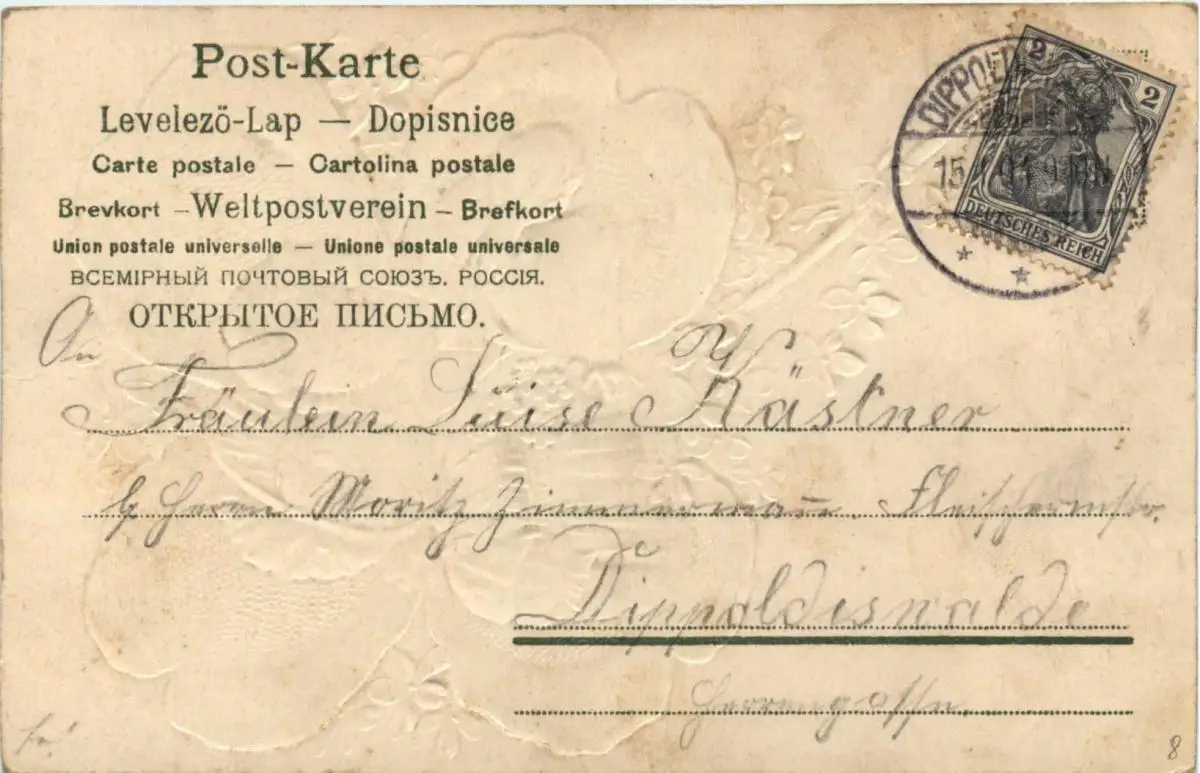 Post-Karte
Levelezö-Lap — Dopisnice
Carte postale — Cartolina postale
Brevkort – Weltpostverein – Brefkort
Union postale universelle — Unione postale universale
ВСЕМІРНЫЙ ПОЧТОВЫЙ СОЮЗЪ. РОССІЯ.
ОТКРЫТОЕ ПИСЬМО.
2
2
DEUTSCHES REICH
DIPPOL
15
An
Fräulein Luise Kästner
Herrn Moritz Zimmermann Fleischermstr.
Dippoldiswalde
Herrengasse
8